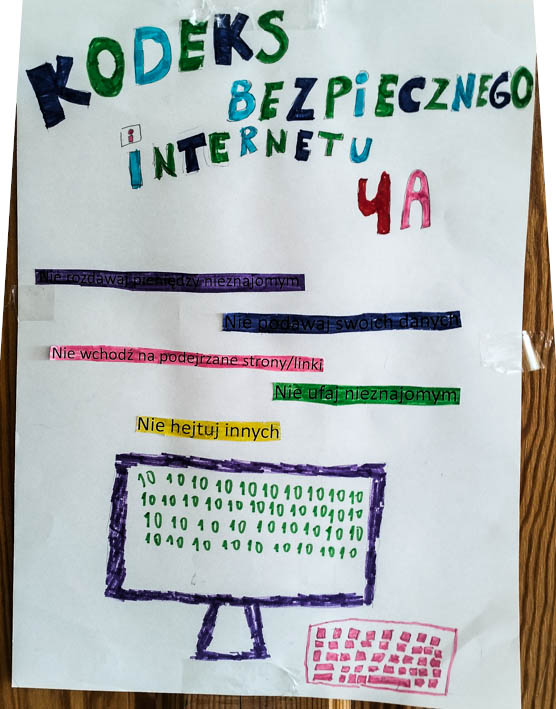 KODEKS
BEZPiECZNEGO
iNTERNETU
4A
Nie rozdawaj pieniędzy nieznajomym
Nie podawaj swoich danych
Nie wchodź na podejrzane strony/linki
Nie ufaj nieznajomym
Nie hejtuj innych
10 10 10 10 10 10 10 10 10 10
10 10 10 10 10 10 10 10 10 10
10 10 10 10 10 10 10 10 10
10 10 10 10 10 10 10 10 10